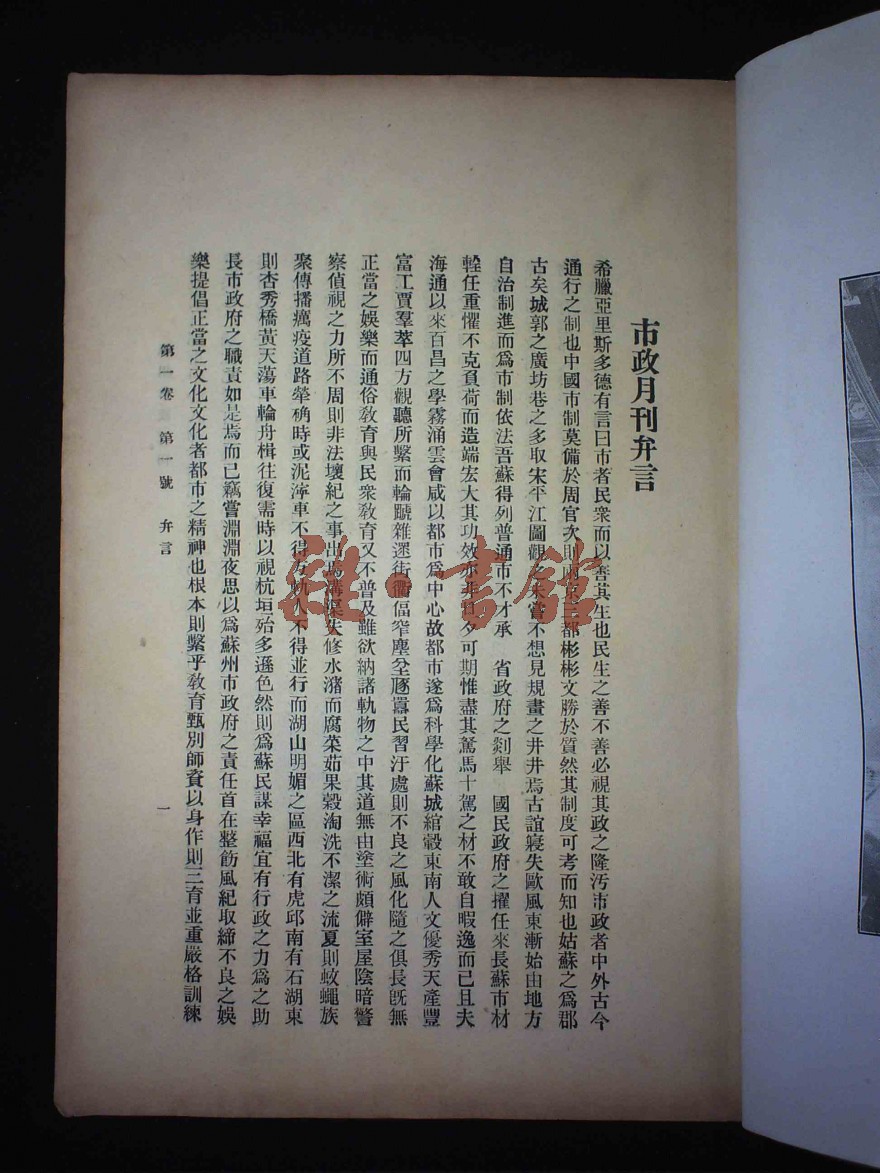 市政月刊弁言
希臘亞里斯多德有言曰市者民衆而以善其生也民生之善不善必視其政之隆汚市政者中外古今
通行之制也中國市制莫備於周官次則兩京三都彬彬文勝於質然其制度可考而知也姑蘇之爲郡
古矣城郭之廣坊巷之多取宋平江圖觀之未嘗不想見規畫之井井焉古誼寖失歐風東漸始由地方
自治制進而爲市制依法吾蘇得列普通市不才承 省政府之剡舉 國民政府之擢任來長蘇市材
輇任重懼不克負荷而造端宏大其功效亦非旦夕可期惟盡其駑馬十駕之材不敢自暇逸而已且夫
海通以來百昌之學霧涌雲會咸以都市爲中心故都市遂爲科學化蘇城綰轂東南人文優秀天產豐
富工賈羣萃四方觀聽所繫而輪蹏雜遝街衢偪窄塵坌豗囂民習汙處則不良之風化隨之俱長旣無
正當之娛樂而通俗敎育與民衆敎育又不普及雖欲納諸軌物之中其道無由塗術頗僻室屋陰暗警
察偵視之力所不周則非法壞紀之事出焉溝渠失修水潴而腐菜茹果穀淘洗不潔之流夏則蚊蠅族
聚傳播癘疫道路犖确時或泥濘車不得方軌人不得並行而湖山明媚之區西北有虎邱南有石湖東
則杏秀橋黃天蕩車輪舟楫往復需時以視杭垣殆多遜色然則爲蘇民謀幸福宜有行政之力爲之助
長市政府之職責如是焉而已竊嘗淵淵夜思以爲蘇州市政府之責任首在整飭風紀取締不良之娛
樂提倡正當之文化文化者都市之精神也根本則繫乎敎育甄別師資以身作則三育並重嚴格訓練
第一卷 第一號 弁言
一
雜·書館